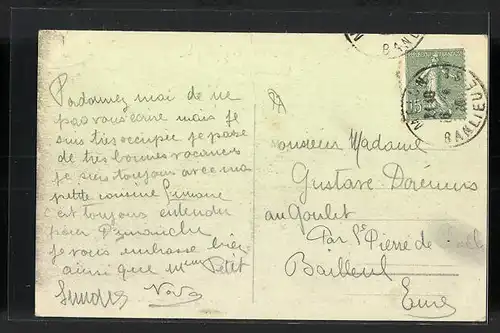 Pardonnez moi de ne
pas vous ecrire mais je
suis tres occupée je passe
de tres bonnes vacances
je suis toujours avec ma
petite cousine Simone
c'est toujours entendu
pour Dimanche
je vous embrasse bien
ainsi que Mme Petit
Monsieur Madame
Gustave
au Goulet
Par St Pierre de
Bailleul
Eure
15
BANLIEUE
BANL